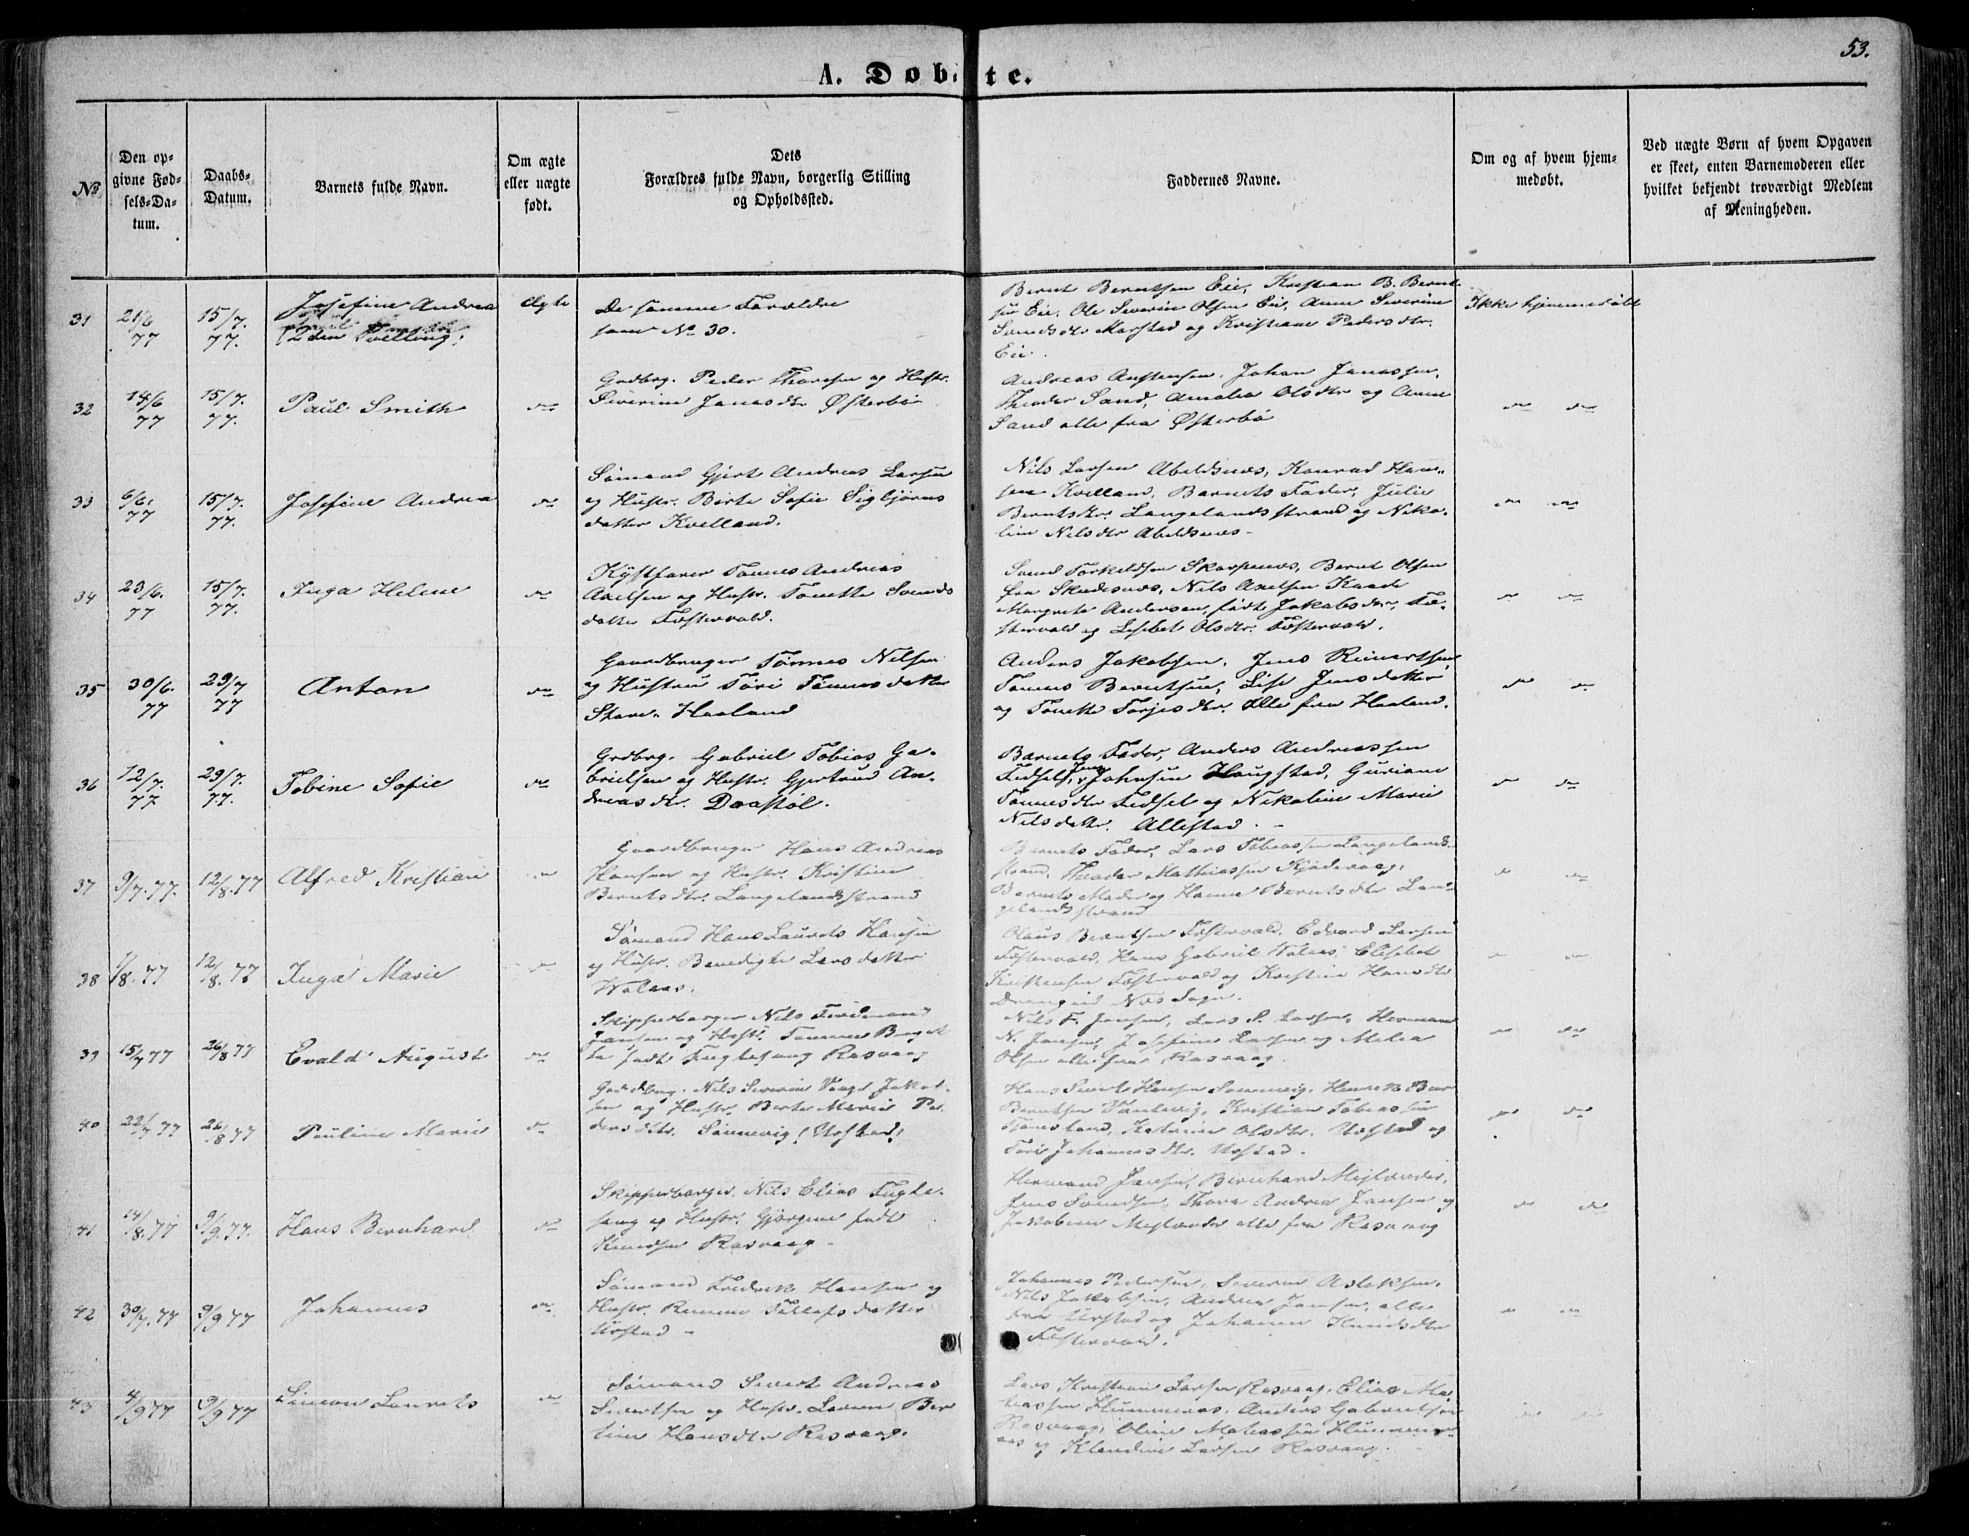 53.
A. Døbte.
№
Den op-
givne Fød-
sels-Da-
tum.
Daabs-
Datum.
Barnets fulde Navn.
Om ægte
eller uægte
født.
Dets
Forældres fulde Navn, borgerlig Stilling
og Opholdssted.
Faddernes Navne.
Om og af hvem hjem-
medøbt.
Ved uægte Børn af hvem Opgaven
er skeet, enten Barnemoderen eller
hvilket bekjendt troværdigt Medlem
af Meningheden.
31
21/6
77
15/7.
77.
Josefine Andrea
(2den Tvilling)
Ægte
De samme Forældre
som No 30.
Bernt Berntsen Eie, Kristian B. Bernt
sen Eie, Ole Severin Olsen Eie, Anne Severine
Marstad og Kristiane Pedersdtr.
Eie.
Ikke hjemmedøbt
32
14/6
77
15/7.
77.
Paul Smith
do
Grdbrg. Peder Thorsen og Hustr.
Severine Jonasdtr Østerbø
Andreas Austensen, Johan Jonassen,
Theodor Sand, Amalia Olsdtr og Anne
Sand alle fra Østerbø
do do
33
6/6.
77
15/7.
77.
Josefine Andrea
do
Sømand Gjert Andreas Larsen
og Hustr. Birte Sofie Sigbjørns
datter Kvelland.
Nils Larsen Abeldsnes, Konrad Han-
sen Kvelland, Barnets Fader, Julie
Berntsdtr. Langelandsstrand og Niko-
line Nilsdtr Abeldsnes.
do do
34
23/6.
77
15/7.
77.
Inga Helene
do
Kystfarer Tønnes Andreas
Axelsen og Hustr. Tonette Svends
datter Fostervold.
Svend Torkeldsen Skarpenes, Bernt Olsen
fra Skudesnes, Nils Axelsen Kaade
Margrete Andersen, født Jakobsdtr. Fo-
stervold og Lisebet Olsdtr. Fostervold.
do do
35
30/6.
77
29/7
77
Anton
do
Gaardbruger Tønnes Nilsen
og Hustru Tori Tønnesdatter
Store-Haaland
Anders Jakobsen, Jens Reinertsen,
Tønnes Berntsen, Lise Jensdatter
og Tonette Torjesdtr. Alle fra Haaland.
do do
36
12/7.
77
29/7.
77.
Tobine Sofie
do
Grdbrg. Gabriel Tobias Ga-
brielsen og Hustr. Gjertrud An-
dreasdtr. Daastøl.
Barnets Fader, Anders Andreassen
Fidsel, Jens Johnsen Haugstad, Guriane
Tønnesdtr Fidsel og Nikoline Marie
Nilsdattr. Allestad.
do do
37
9/7.77.
12/8.77
Alfred Kristian
do
Gaardbruger Hans Andreas
Hansen og Hustr. Kristine
Berntsdtr. Langelandsstrand
Barnets Fader, Lars Tobiassen Langelands-
strand, Theodor Mathiassen
Barnets Moder og Hanne Berntsdtr Lan-
gelandsstrand
do do
38
1/8.77
12/8.77
Inga Marie
do
Sømand Hans Laurets Hansen
og Hustr. Benedigte Larsdatter
Olaus Berntsen Fostervold, Edvard Larsen
Fostervold, Hans Gabriel Elisebet
Kristensen Fostervold og Kristine Hansdtr
do do
39
15/7 77
26/8 77
Evald August
do
Skipperborger Nils Ferdinand
Jansen og Hustr. Tomine Berget
te født Fuglesang Rasvaag
Nils F. Jansen, Lars P. Larsen, Herman
N. Jansen, Josefine Larsen og Malea
Olsen alle fra Rasvaag.
do do
40
22/7 77
26/8 77
Pauline Marie
do
Gaardbrug. Nils Severin Vaage Jakob-
sen og Hustr. Berte Marie Pe-
dersdtr. Sønnevig (Urstad)
Hans Hansen Sønnevig,
Berntsen Kristian Tobiassen
Katrine Olsdtr. Urstad og
Tori Johannesdtr. Urstad.
do do
41
14/8.77
9/9.77.
Hans Bernhard
do
Skipperborger Nils Elias Fugle-
sang og Hustr. Gjørgine født
Knudsen Rasvaag.
Hermand Jansen, Bernhard Mejlænder,
Jens Svendsen, Thora Andrea Jansen og
Jakobine Mejlænder alle fra Rasvaag
do do
42
30/7.77
9/9 77
Johannes
do
Sømand Fredrik Hansen og
Hustr. Tallaksdatter
Urstad
Johannes Pedersen, Severin Aslaksen,
Nils Jakobsen, Andrea Jansen, alle
fra Urstad og Johanne Knudsdtr
Fostervold.
do do
43
4/9 77
9/9 77
Simon Laurets
do
Sømand Sivert Andreas
Sivertsen og Hustr. Ber
tine Hansdtr Rasvaag.
Lars Kristian Larsen Rasvaag, Elias Ma-
tiassen Hummeras, Anders Gabrielsen
Rasvaag, Oline Matiassen Hummer-
as og Klandine Larsen Rasvaag.